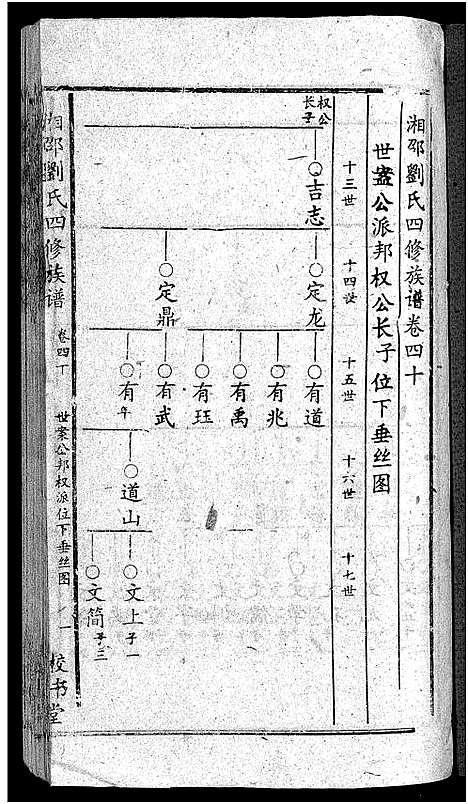 湘邵劉氏四修族谱卷四十
世盎公派邦权公长子位下垂丝图
十三世
十四世
十五世
十六世
十七世
权公长子
吉志
定龙
定鼎
有道
有兆
有禹
有珏
有武
有年
道山
文上 子一
文简 子三
湘邵劉氏四修族谱
卷四丁
世案公邦权派位下垂丝图
一
校书堂